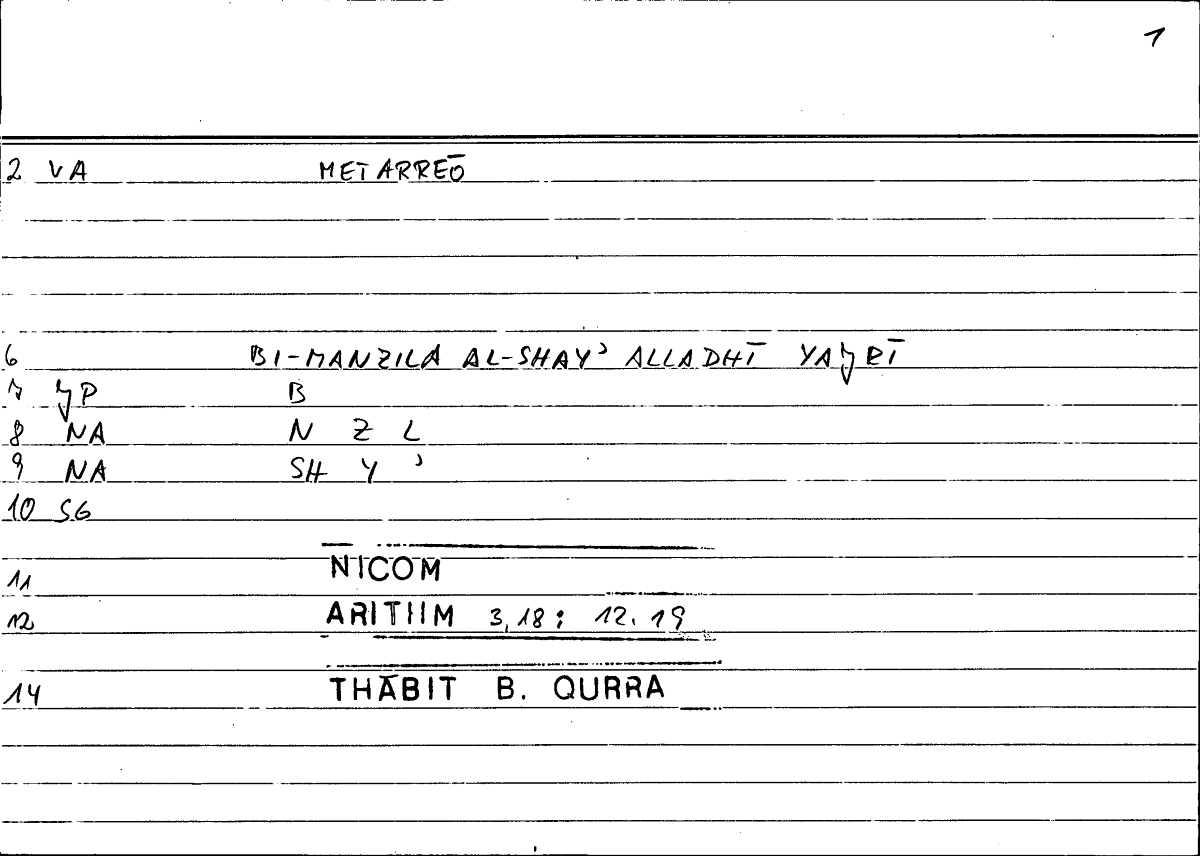 1
2 VA METARREŌ
6 BI-MANZILA AL-SHAYʾ ALLADHĪ YAJRĪ
7 JP B
8 NA N Z L
9 NA SH Y ʾ
10 SG
11 NICOM
12 ARITHM 3,18; 12.19
14 THĀBIT B. QURRA